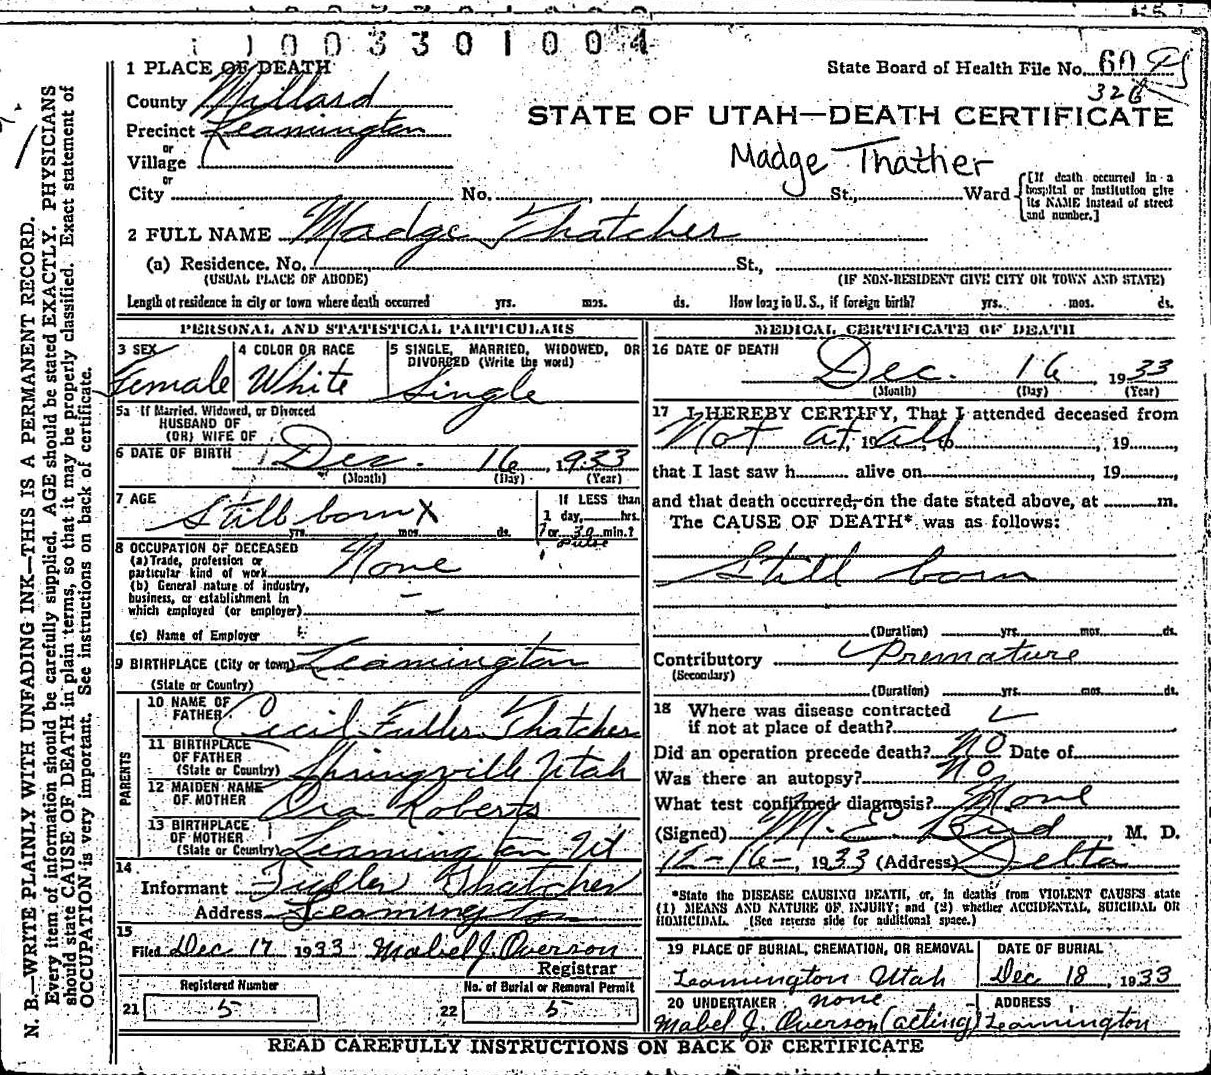 1003301004
1 PLACE OF DEATH
State Board of Health File No. 60
326
County Millard
STATE OF UTAH—DEATH CERTIFICATE
Precinct Leamington
or
Village
Madge Thather
or
City No. , St., Ward
[If death occurred in a hospital or institution give its NAME instead of street and number.]
2 FULL NAME Madge Thatcher
(a) Residence. No. St.,
(USUAL PLACE OF ABODE) (IF NON-RESIDENT GIVE CITY OR TOWN AND STATE)
Length of residence in city or town where death occurred yrs. mos. ds. How long in U. S., if foreign birth? yrs. mos. ds.
PERSONAL AND STATISTICAL PARTICULARS
3 SEX
Female
4 COLOR OR RACE
White
5 SINGLE, MARRIED, WIDOWED, OR
DIVORCED (Write the word)
Single
5a If Married, Widowed, or Divorced
HUSBAND OF
(OR) WIFE OF
6 DATE OF BIRTH Dec. 16, 1933
(Month) (Day) (Year)
7 AGE
Still born X
yrs. mos. ds.
If LESS than
1 day, hrs.
or 30 min.?
pulse
8 OCCUPATION OF DECEASED
(a) Trade, profession or
particular kind of work None
(b) General nature of industry,
business, or establishment in
which employed (or employer)
(c) Name of Employer
9 BIRTHPLACE (City or town) Leamington
(State or Country)
PARENTS
10 NAME OF
FATHER Cecil Fuller Thatcher
11 BIRTHPLACE
OF FATHER
(State or Country) Springville Utah
12 MAIDEN NAME
OF MOTHER Ora Roberts
13 BIRTHPLACE
OF MOTHER
(State or Country) Leamington Ut
14
Informant Fuller Thatcher
Address Leamington
15
Filed Dec 17 1933 Mabel J. Overson
Registrar
Registered Number
21 5
No. of Burial or Removal Permit
22 5
MEDICAL CERTIFICATE OF DEATH
16 DATE OF DEATH
Dec. 16, 1933
(Month) (Day) (Year)
17 I HEREBY CERTIFY, That I attended deceased from
Not at all, 19 , 19
that I last saw h alive on , 19 ,
and that death occurred, on the date stated above, at m.
The CAUSE OF DEATH* was as follows:
Still born
(Duration) yrs. mos. ds.
Contributory Premature
(Secondary)
(Duration) yrs. mos. ds.
18 Where was disease contracted
if not at place of death?
Did an operation precede death? No Date of
Was there an autopsy? No
What test confirmed diagnosis? None
(Signed) M. E. Bird, M. D.
12-16-, 1933 (Address) Delta
*State the DISEASE CAUSING DEATH, or, in deaths from VIOLENT CAUSES state
(1) MEANS AND NATURE OF INJURY; and (2) whether ACCIDENTAL, SUICIDAL OR
HOMICIDAL. (See reverse side for additional space.)
19 PLACE OF BURIAL, CREMATION, OR REMOVAL
Leamington Utah
DATE OF BURIAL
Dec 18, 1933
20 UNDERTAKER none
Mabel J. Overson (acting)
ADDRESS
Leamington
READ CAREFULLY INSTRUCTIONS ON BACK OF CERTIFICATE
N. B.—WRITE PLAINLY WITH UNFADING INK—THIS IS A PERMANENT RECORD.
Every item of information should be carefully supplied. AGE should be stated EXACTLY. PHYSICIANS
should state CAUSE OF DEATH in plain terms, so that it may be properly classified. Exact statement of
OCCUPATION is very important. See instructions on back of certificate.